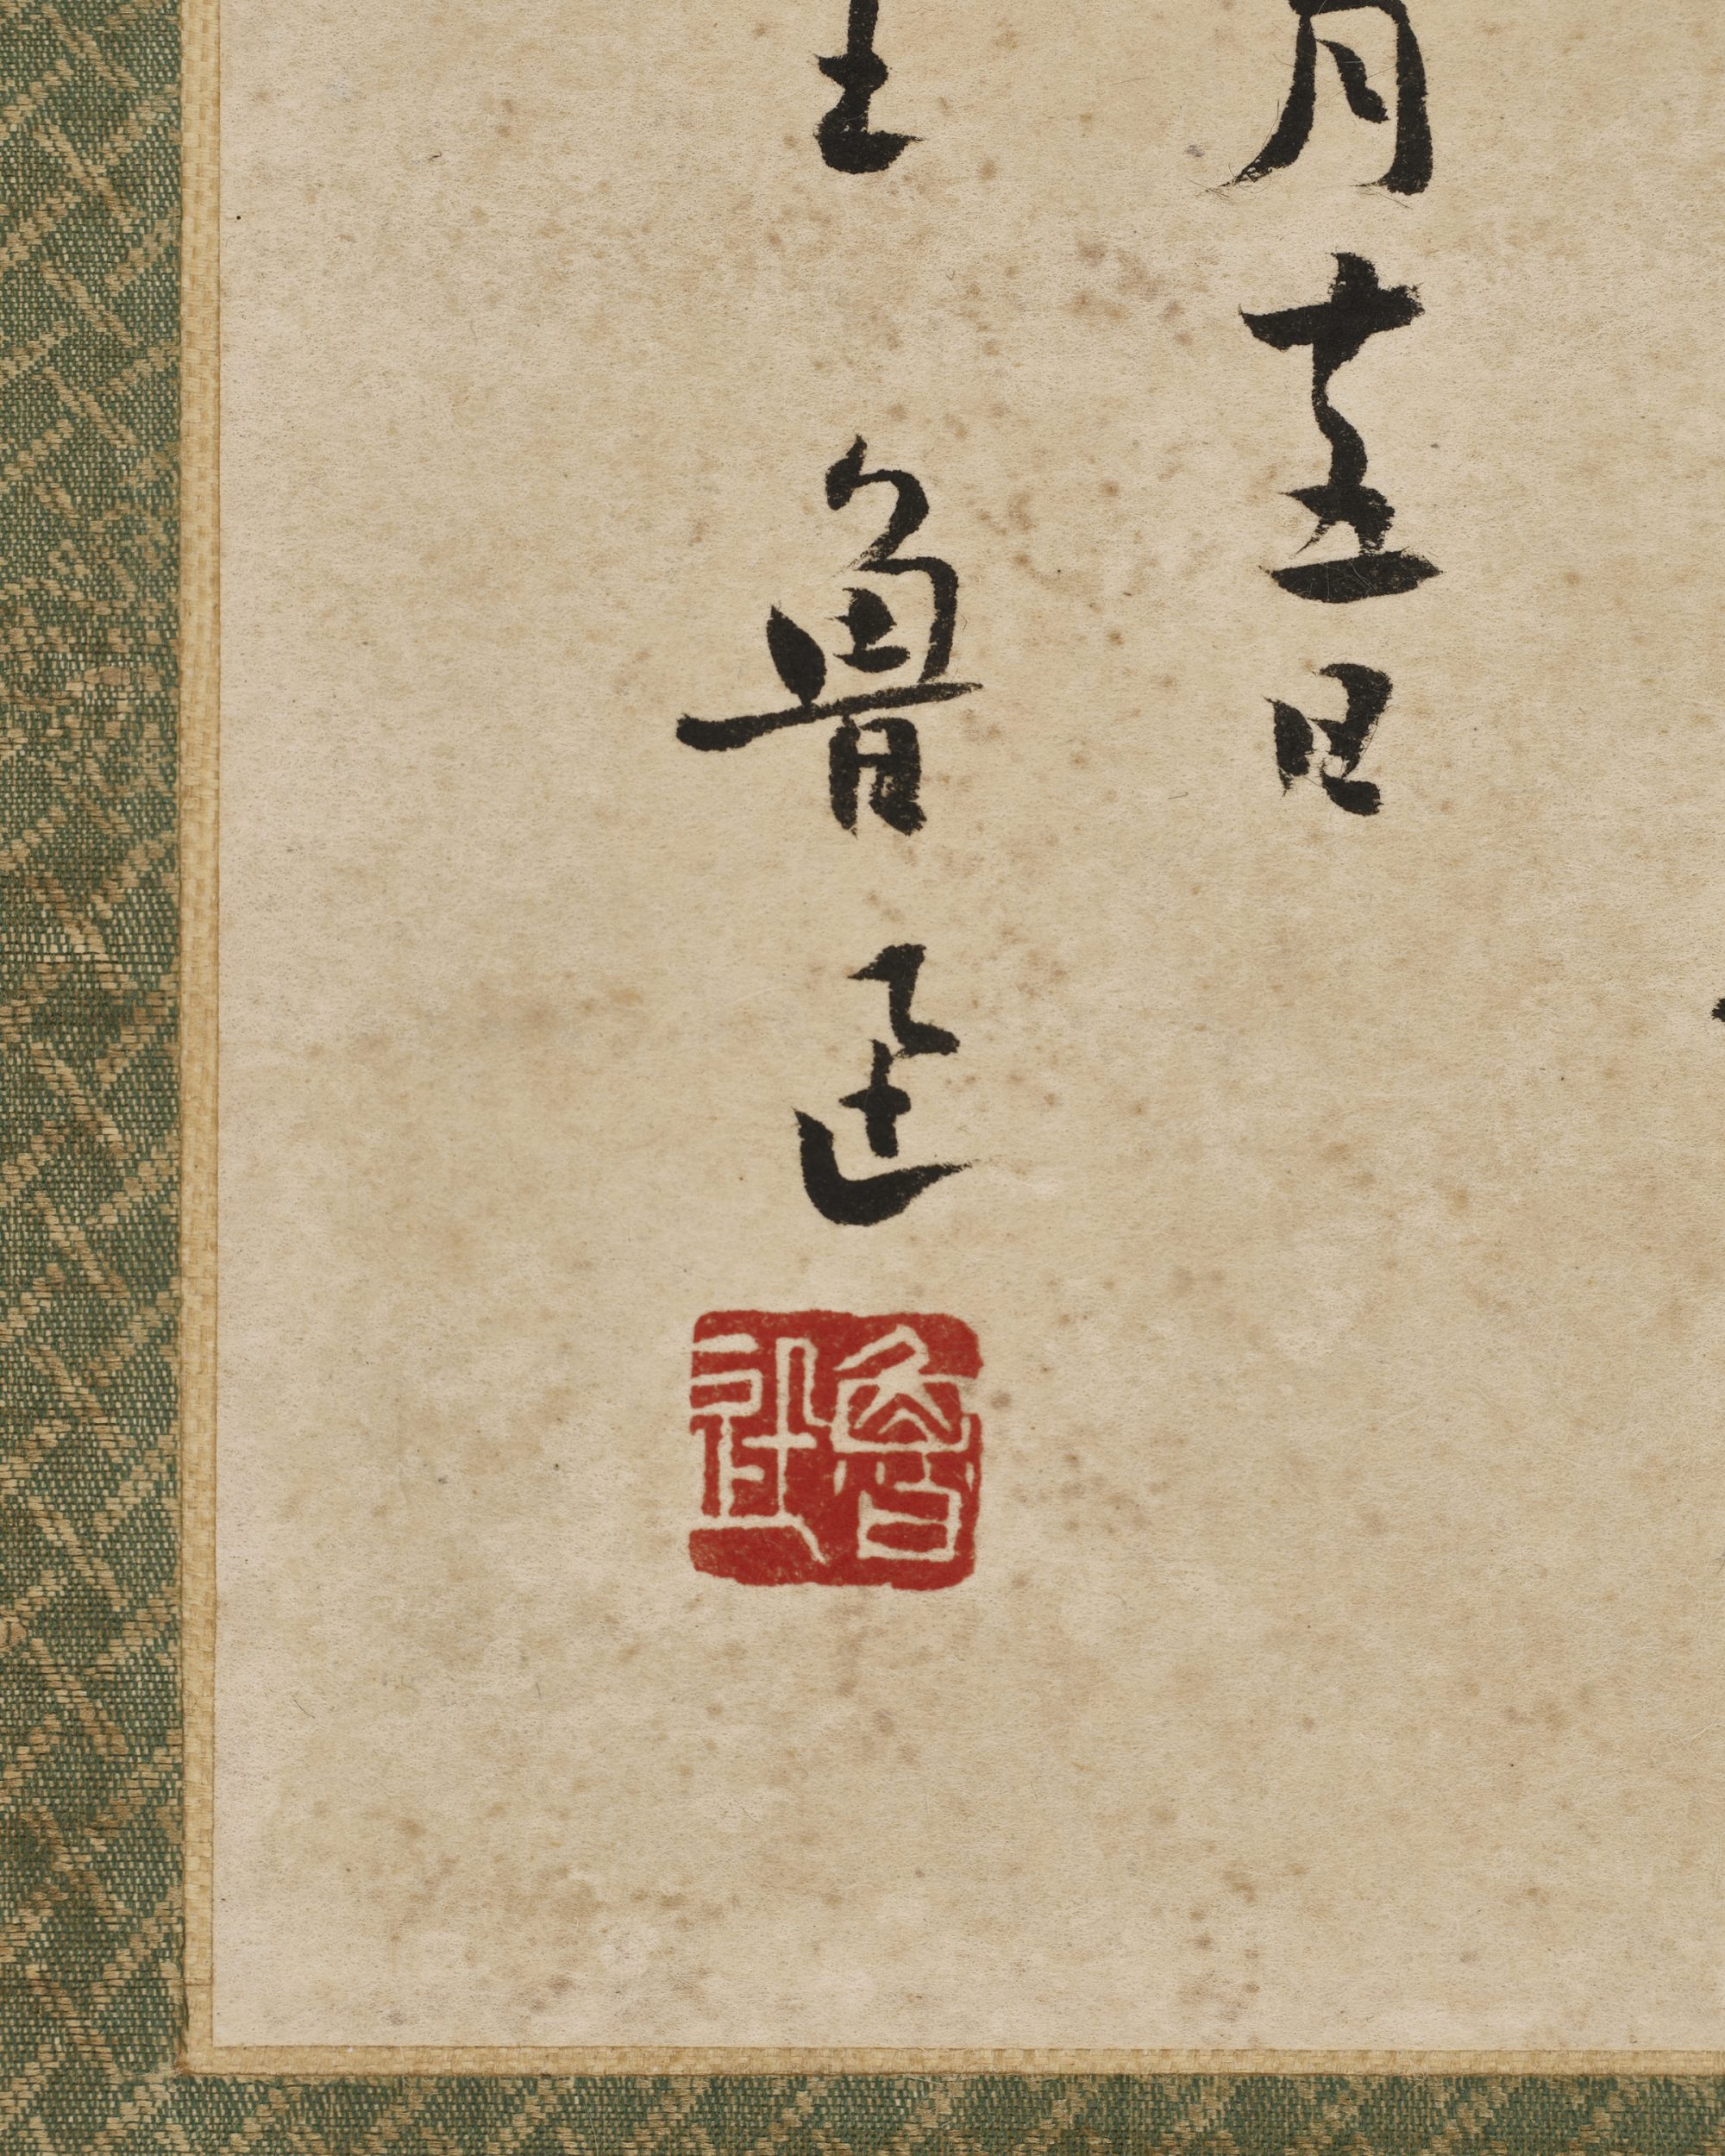 月十五日
魯迅
魯迅